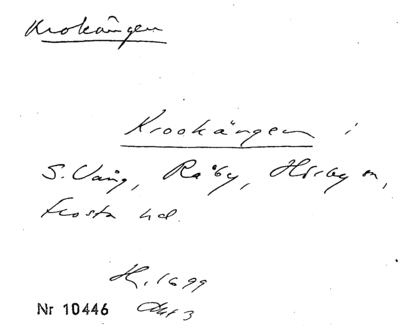 Krokängen
Krookängen i
S. Vång, Råby, Hörby sn,
Frosta hd.
H, 1699
Nr 10446 Akt 3